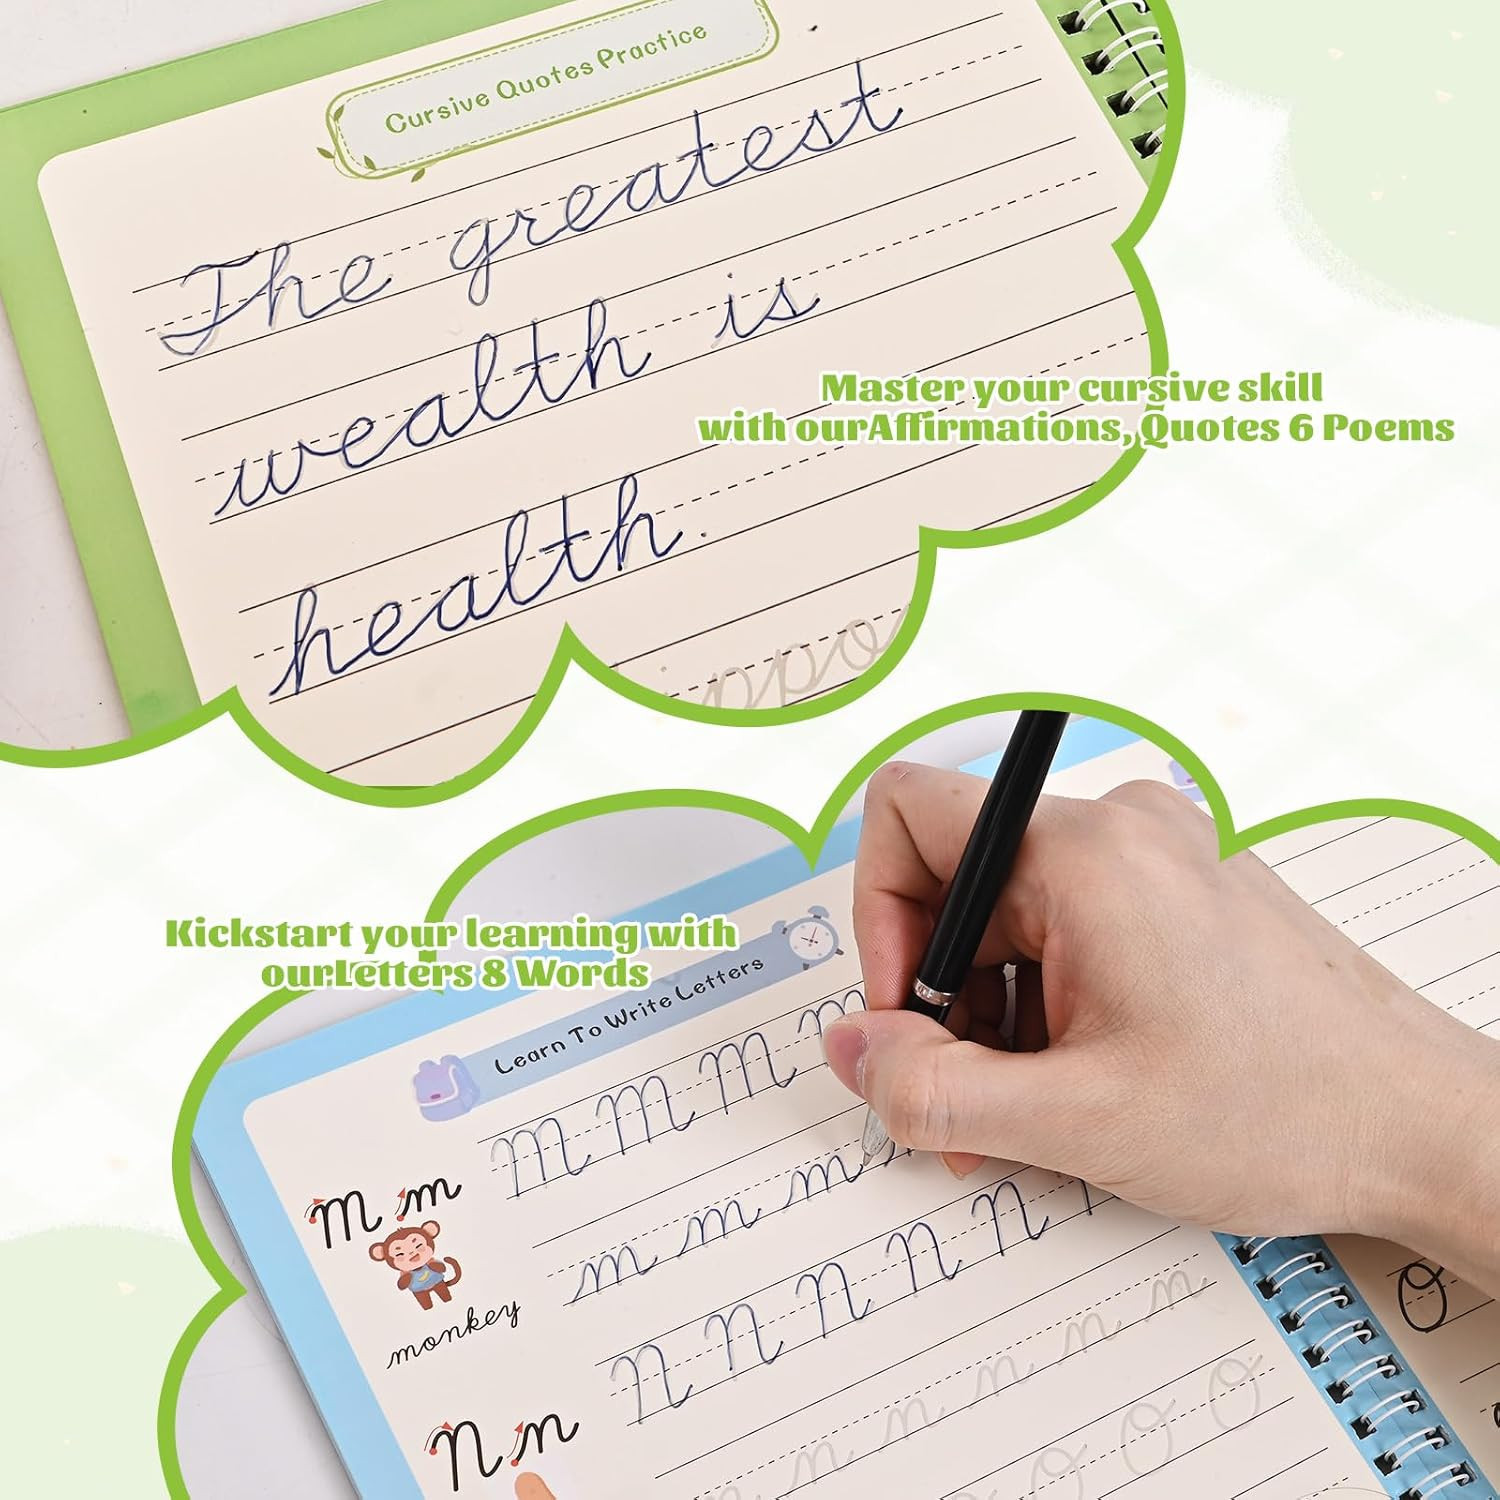 Cursive Quotes Practice
The greatest
wealth is
health.
ippo
Master your cursive skill
with ourAffirmations, Quotes 6 Poems
Kickstart your learning with
ourLetters 8 Words
Learn To Write Letters
M M M M
M m
m m m
monkey
N N N N N
n n n n n
N n
O O O
O